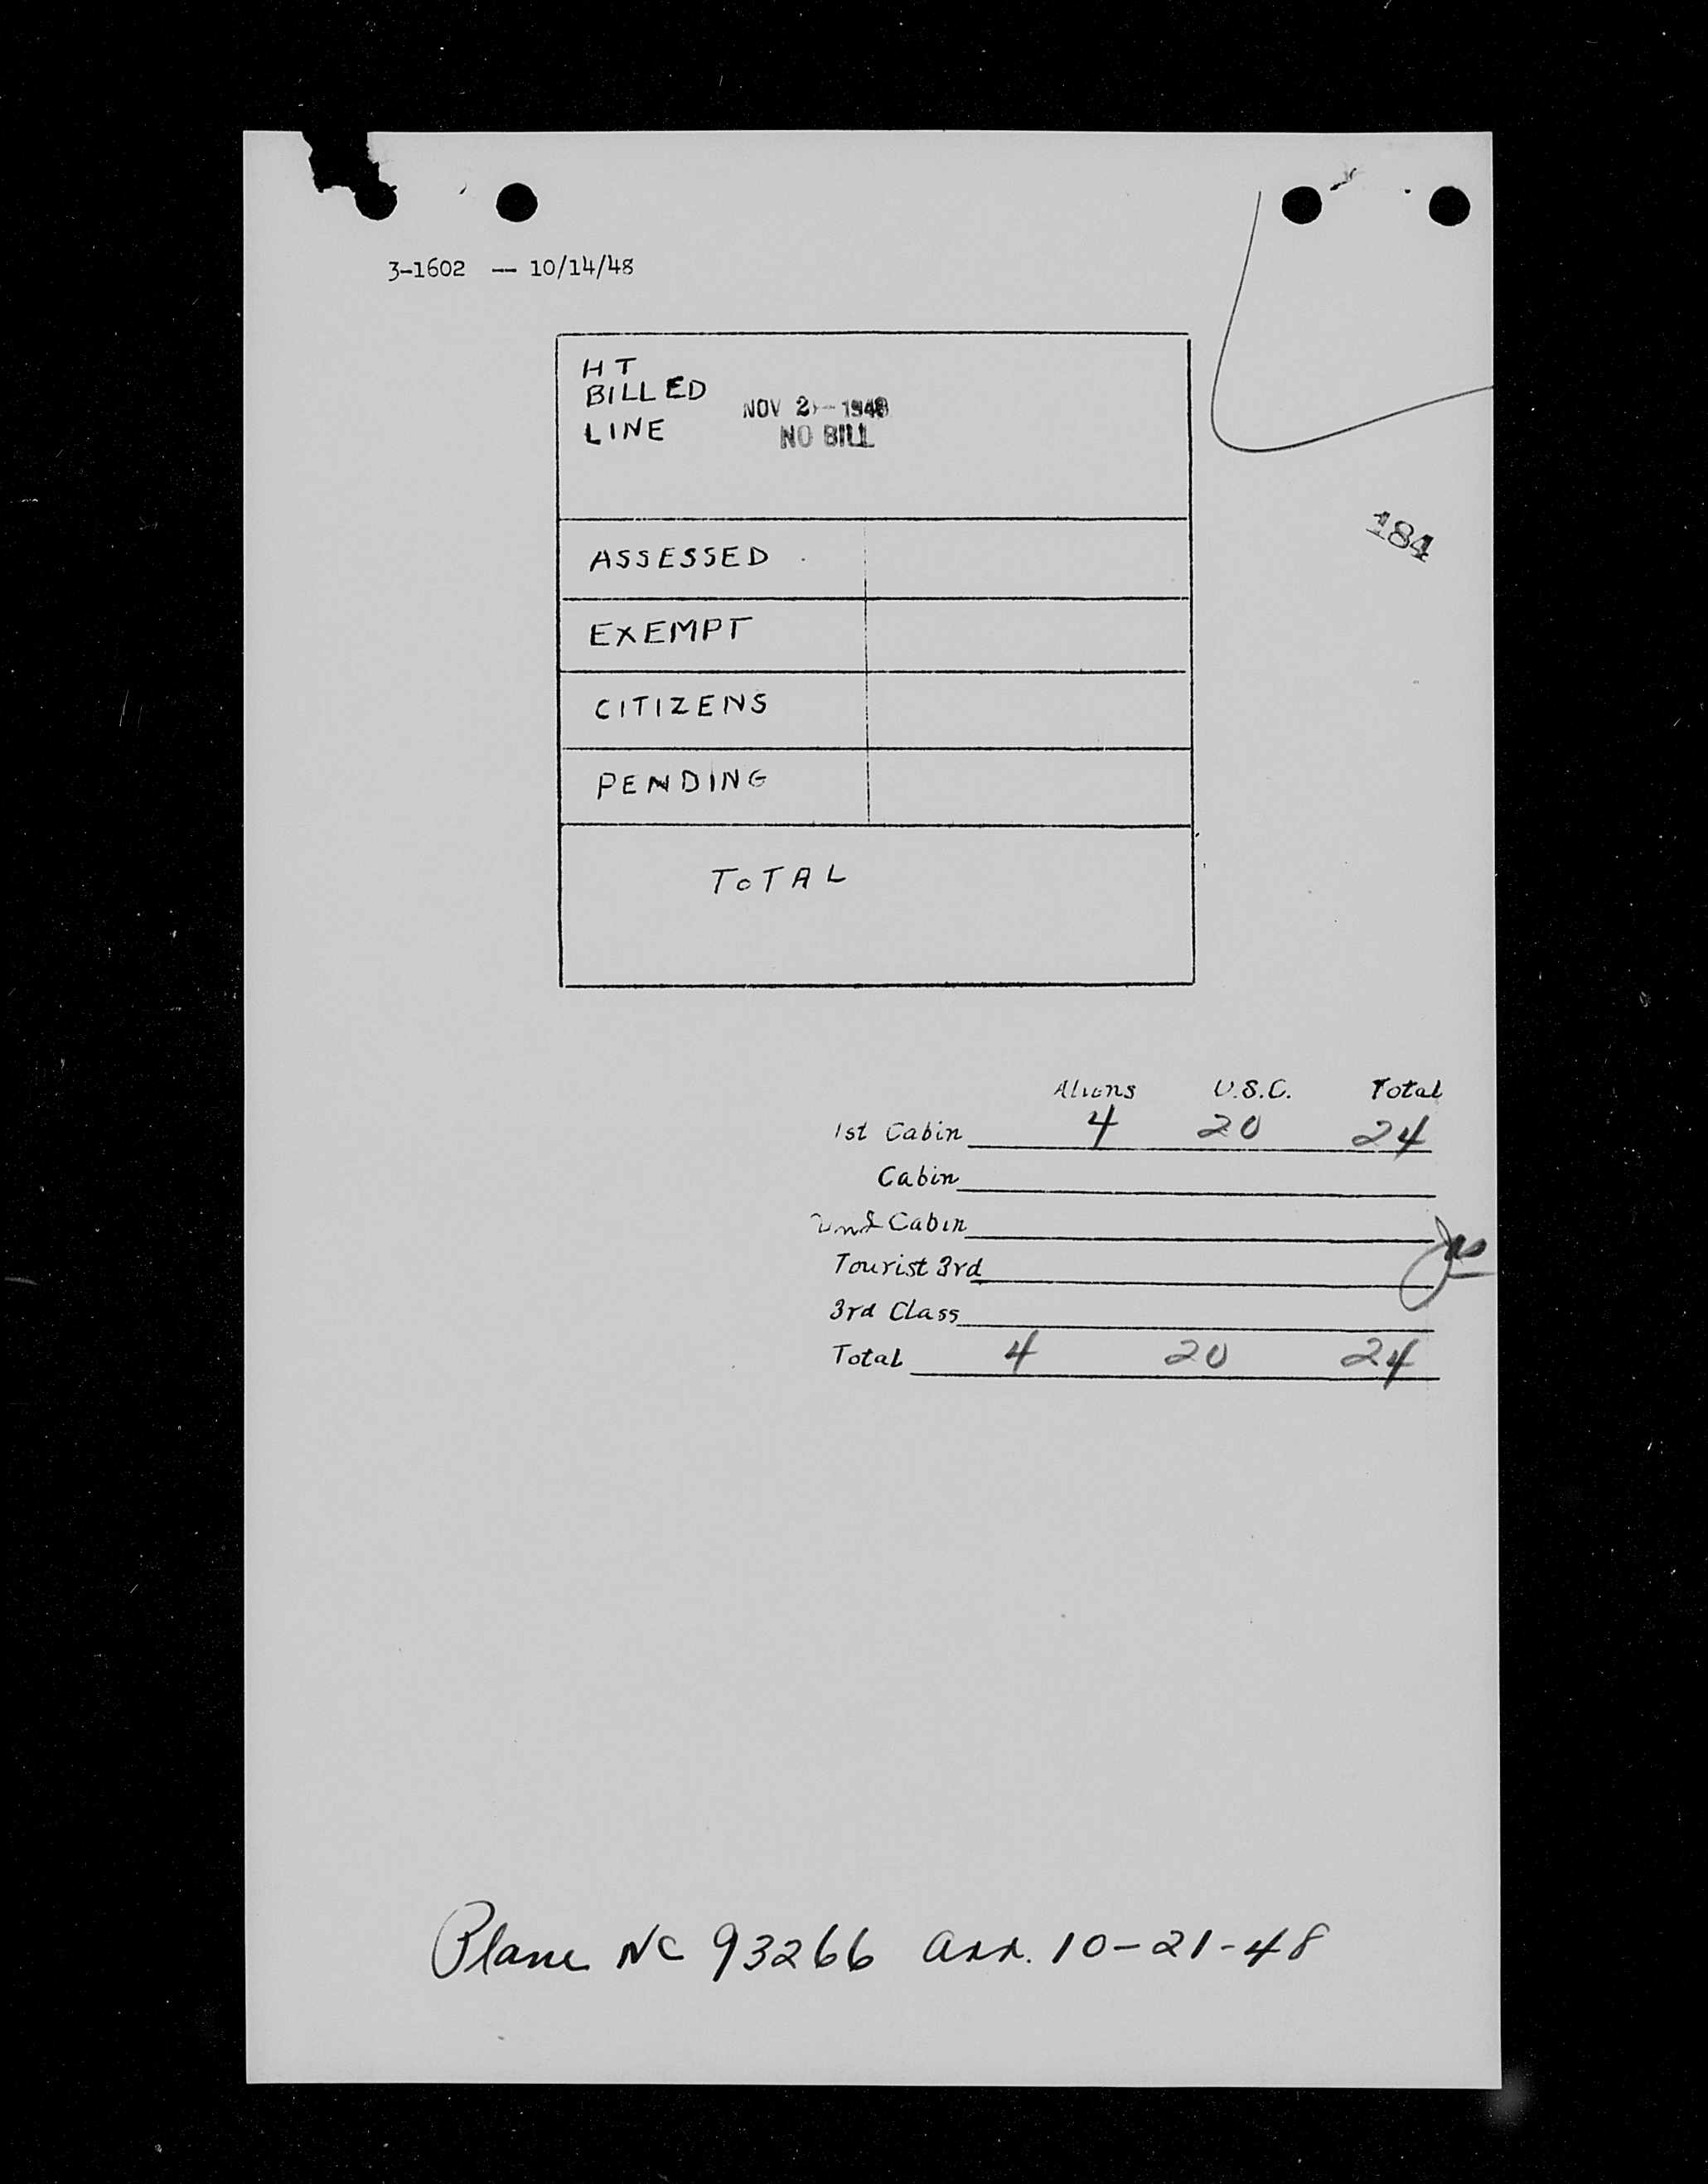 3-1602 -- 10/14/48
HT
BILLED
LINE
NOV 2 - 1948
NO BILL
184
ASSESSED
EXEMPT
CITIZENS
PENDING
TOTAL
Aliens U.S.C. Total
1st Cabin 4 20 24
Cabin
2nd Cabin
Tourist 3rd
3rd Class
Total 4 20 24
Plane NC 93266 arr. 10-21-48